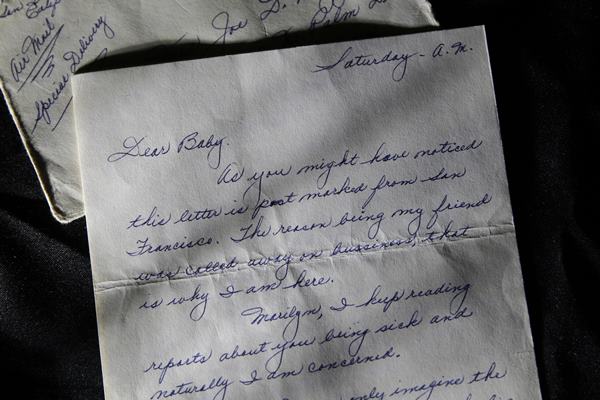 San
Air Mail
Special Delivery
Joe D.
Palm
Saturday - A.M.
Dear Baby.
As you might have noticed
this letter is post marked from San
Francisco. The reason being my friend
was called away on bussiness, that
is why I am here.
Marilyn, I kup reading
reports about you being sick and
naturally I am concerned.
only imagine the